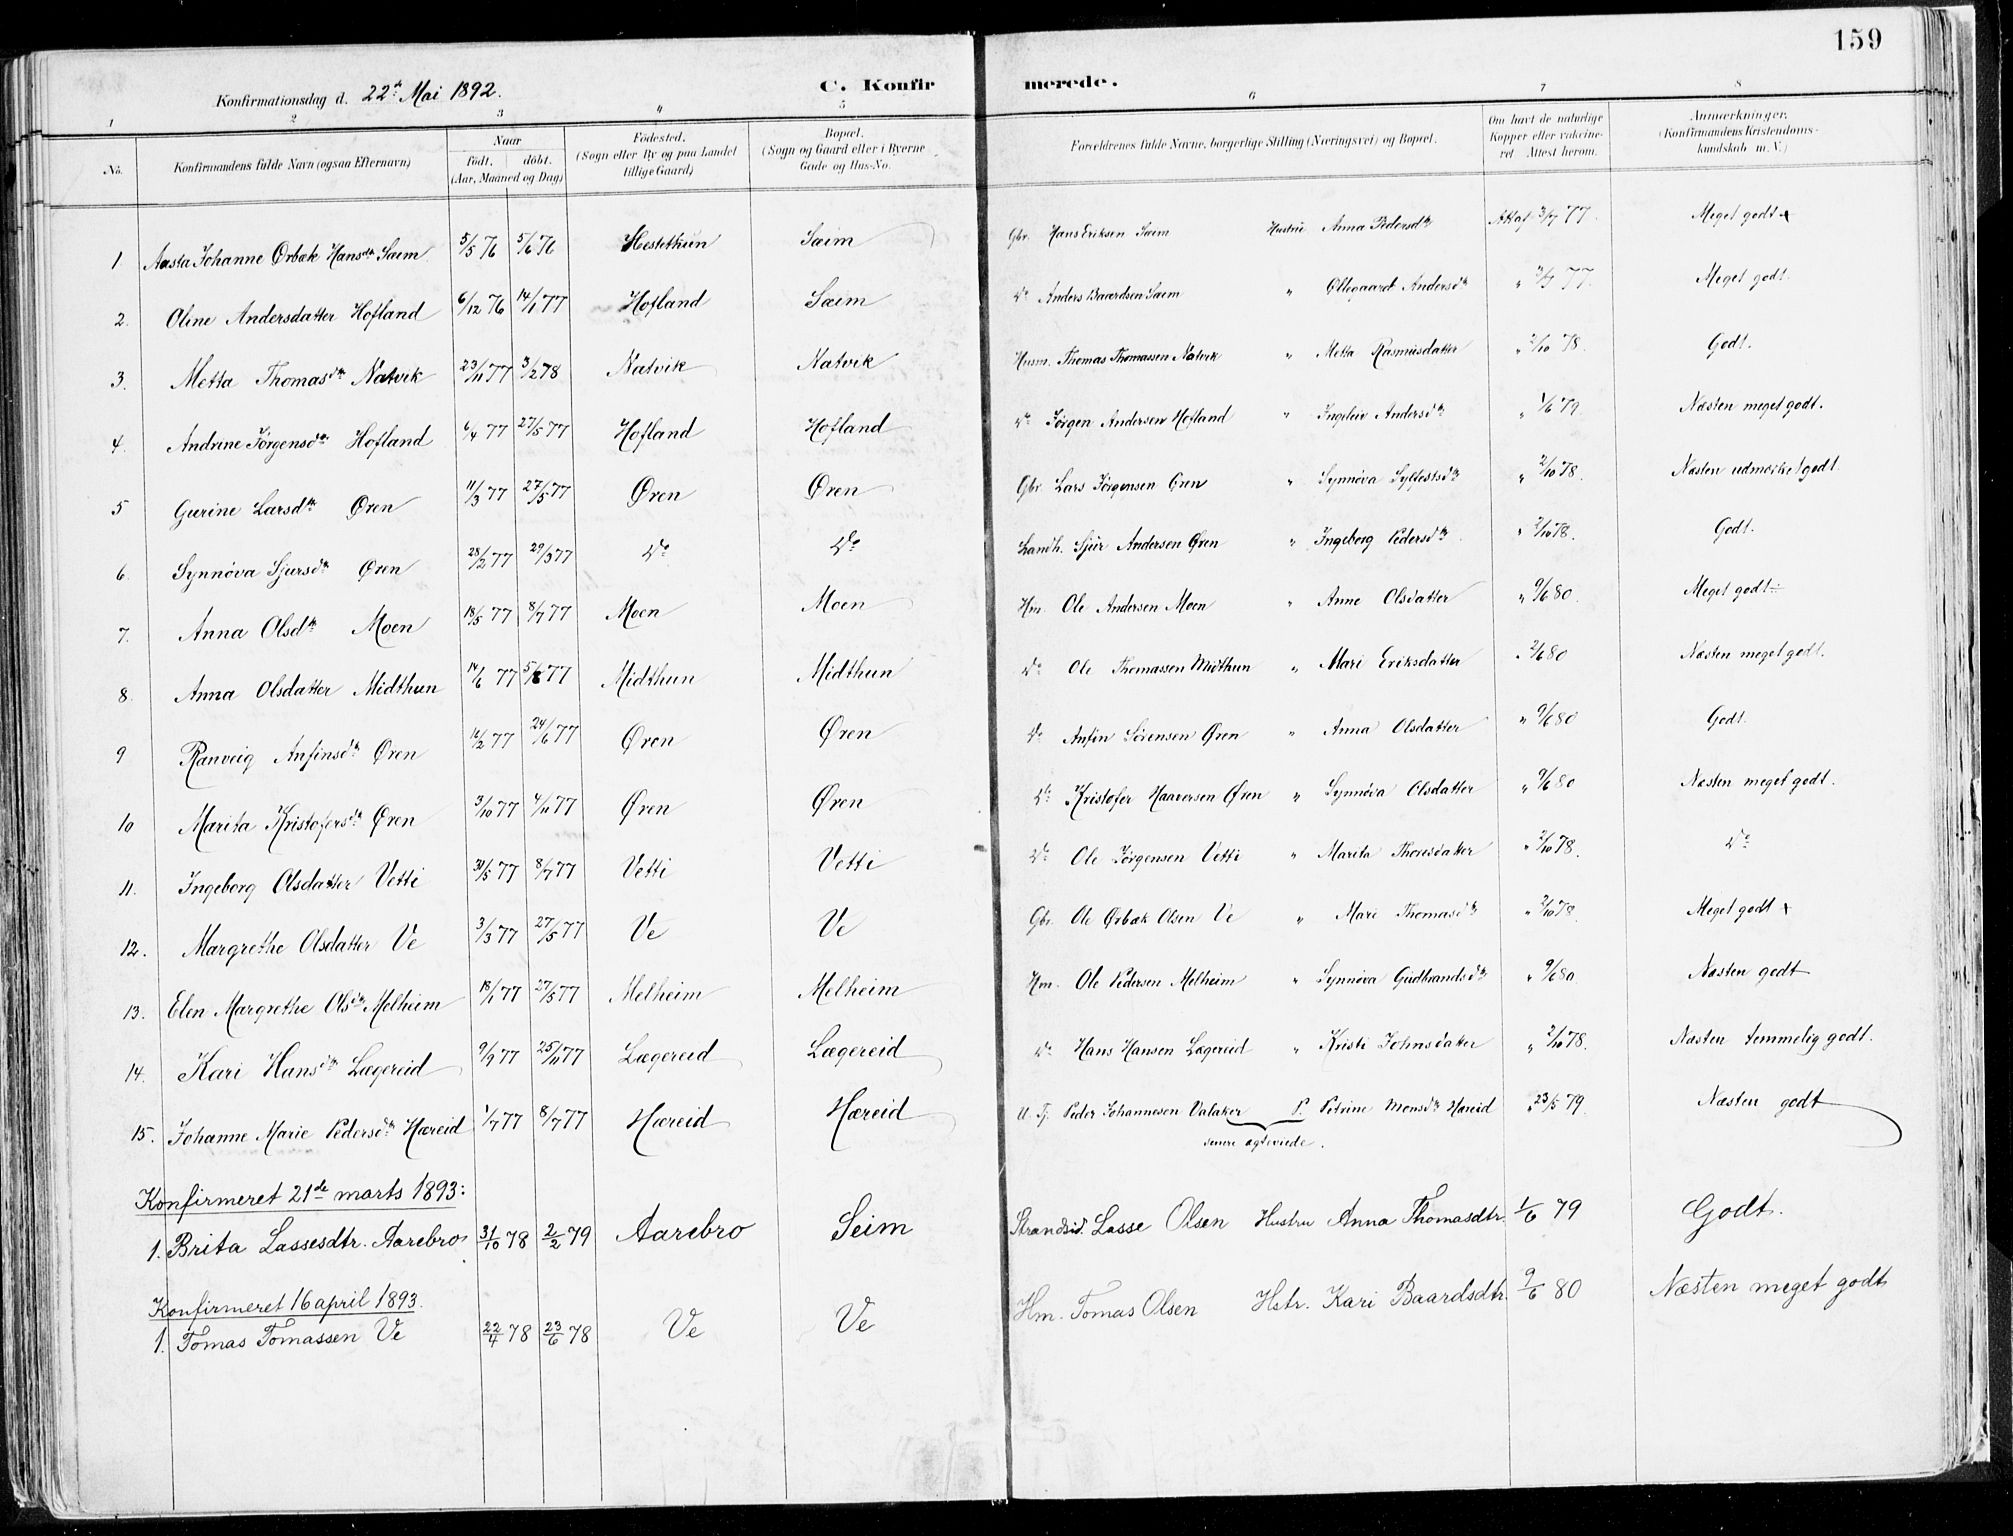 159
Konfirmationsdag d. 22de Mai 1892. C. Konfirmerede.
1 2 3 4 5 6 7 8
No. Konfirmandens fulde Navn (ogsaa Efternavn) Naar født. døbt. (Aar, Maaned og Dag) Fødested. (Sogn eller By og paa Landet tillige Gaard) Bopæl. (Sogn og Gaard eller i Byerne Gade og Hus-No. Forældrenes fulde Navne, borgerlige Stilling (Næringsvei) og Bopæl. Om havt de naturlige Kopper eller vakcineret Attest herom. Anmærkninger. (Konfirmandens Kristendomskundskab m. V.)
1 Aasta Johanne Ørbæk Hansdtr Sæim 5/5 76 5/6 76 Hestethun Sæim Gbr. Hans Eriksen Sæim Hustru Anna Pedersdtr Attest 3/7 77. Meget godt x
2. Oline Andersdatter Hofland 6/12 76 14/1 77 Hofland Sæim Do Anders Baardsen Sæim " Ollegaard Andersdtr " 3/7 77. Meget godt.
3. Metta Thomasdtr Natvik 23/11 77 3/2 78 Natvik Natvik Husm. Thomas Thomassen Natvik " Metta Rasmusdatter " 2/10 78. Godt.
4. Andrine Jørgensdtr Hofland 6/4 77 27/5 77 Hofland Hofland Do Jørgen Andersen Hofland " Ingeleiv Andersdtr " 1/6 79. Næsten meget godt.
5 Gurine Larsdtr Øren 11/3 77 27/5 77 Øren Øren Gbr. Lars Jørgensen Øren " Synnøva Sylfestsdtr " 2/10 78. Næsten udmærket godt.
6. Synnøva Sjursdtr Øren 28/2 77 29/3 77 Do Do Landh. Sjur Andersen Øren " Ingeborg Pedersdtr " 2/10 78. Godt.
7. Anna Olsdtr Moen 18/5 77 8/7 77 Moen Moen Hm. Ole Andersen Moen " Anne Olsdatter " 9/6 80. Meget godt
8. Anna Olsdatter Midthun 14/6 77 5/8 77 Midthun Midthun Do Ole Thomassen Midthun " Mari Eriksdatter " 2/6 80 Næsten meget godt.
9 Ranveig Anfinsdtr Øren 12/2 77 24/6 77 Øren Øren Do Anfin Sørensen Øren " Anna Olsdatter " 9/6 80 Godt.
10 Marita Kristofersdtr Øren 3/10 77 4/11 77 Øren Øren Do Kristofer Haaversen Øren " Synnøva Olsdatter " 9/6 80 Næsten meget godt.
11. Ingeborg Olsdatter Vetti 30/5 77 8/7 77 Vetti Vetti Do Ole Jørgensen Vetti " Marita Thoresdatter " 2/10 78. Do
12. Margrethe Olsdatter Ve 3/3 77 27/5 77 Ve Ve Gbr. Ole Ørbæk Olsen Ve " Mari Thomasdtr " 2/10 78. Meget godt x
13. Elen Margrethe Olsdtr Melheim 18/1 77 27/5 77 Melheim Melheim Hm. Ole Pedersen Melheim " Synnøva Gudbrandsdtr " 9/6 80 Næsten godt
14. Kari Hansdtr Lægereid 9/9 77 25/11 77 Lægereid Lægereid Do Hans Hansen Lægereid " Kristi Johnsdatter " 2/10 78. Næsten temmelig godt.
15. Johanne Marie Pedersdtr Hæreid 1/7 77 8/7 77 Hæreid Hæreid U. Peder Johannesen Valaker P. Petrine Monsdtr Hæreid " 23/5 79. Næsten godt
senere ægteviede.
Konfirmeret 21de marts 1893:
1. Brita Lassesdtr. Aarebro 31/10 78 2/2 79 Aarebro Seim Strandsid. Lasse Olsen Hustru Anna Thomasdtr. 1/6 79 Godt.
Konfirmeret 16 april 1893.
1. Tomas Tomassen Ve 22/4 78 23/6 78 Ve Ve Hm. Tomas Olsen Hstr. Kari Baardsdtr. 9/6 80 Næsten meget godt